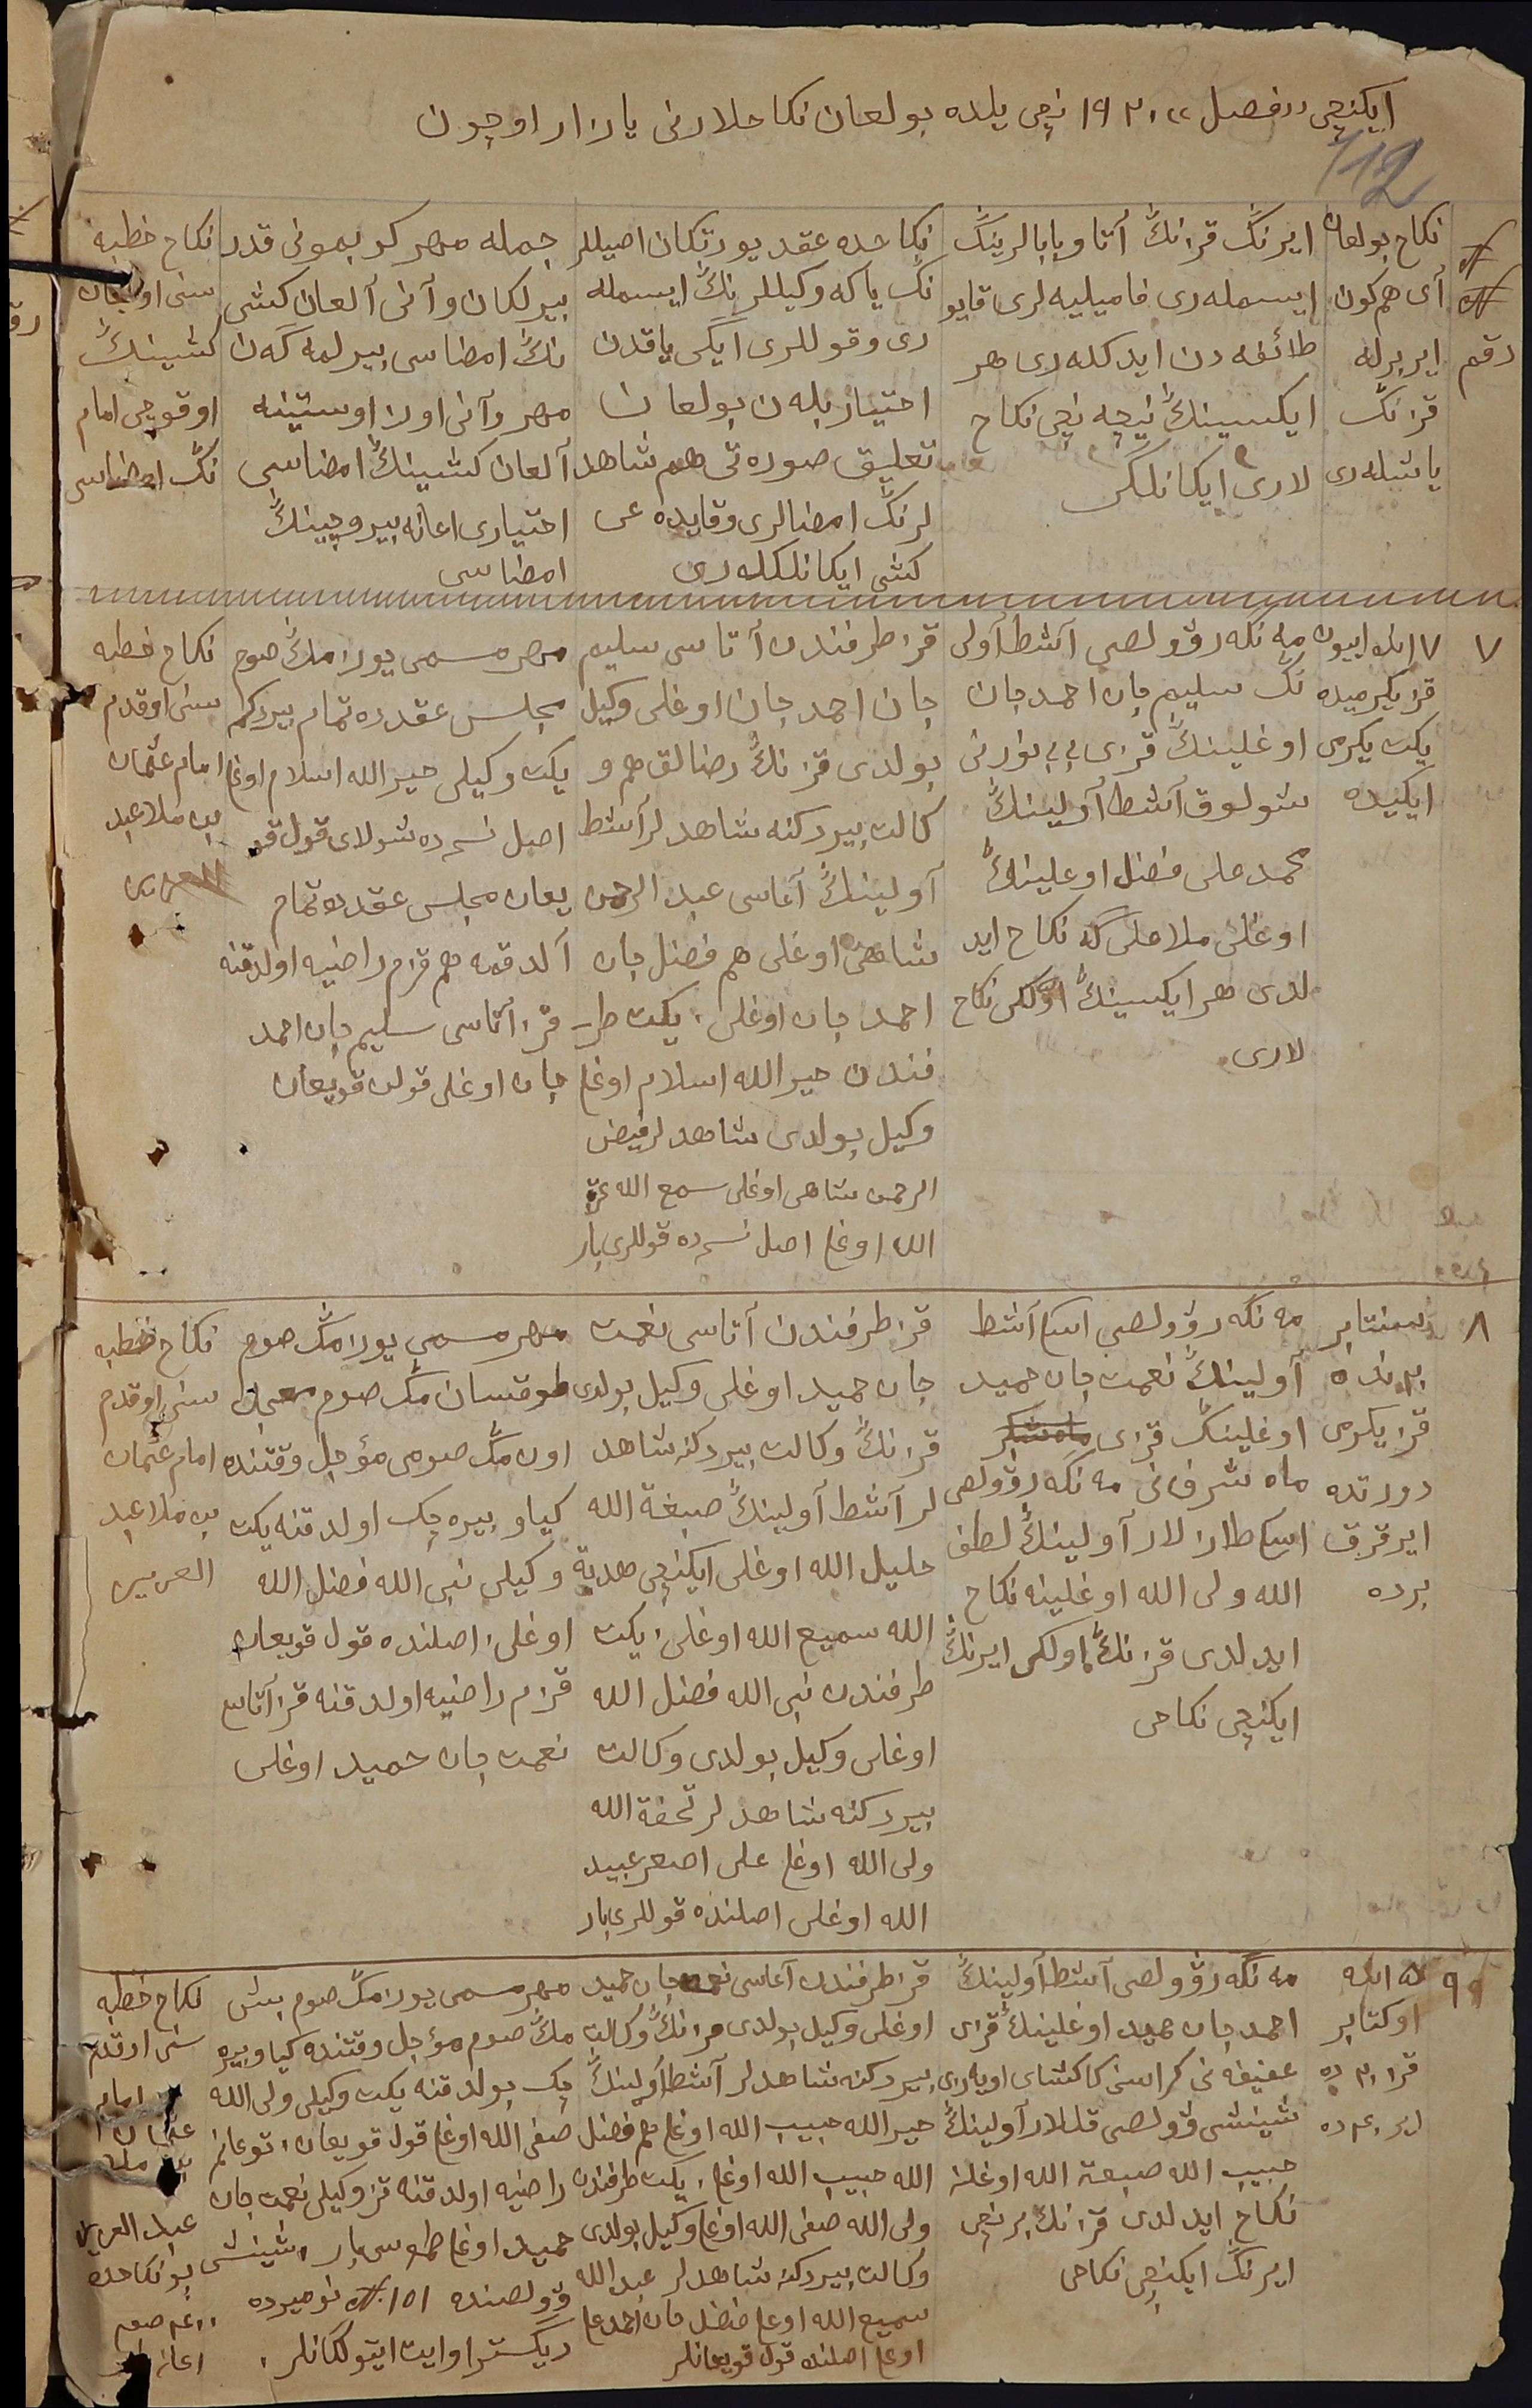 ایکنچی ,,فصل ,, ١٩٢٠ نچی یلده بولغان نکاحلارنی یازار اوچون
112
№
№
رقم
نکاح بولغان
آی هم کون
ایر برله
قزنڭ
یاشله‌ری
ایرنڭ قزنڭ آتا و بابالرینڭ
ایسمله‌ری فامیلیه لری قایو
طائفه دن ایدکله‌ری هر
ایکسینڭ نیچه نچی نکاح
لاری ایکانلگی
نکاحده عقد یورتکان اصیللر
نڭ یاکه وکیللرنڭ ایسمله
ری و قوللری ایکی یاقدن
اختیار بله‌ن بولغان
تعلیق صورةتی هم شاهد
لرنڭ امضالری و قایده عی
کشی ایکانلکله‌ری
جمله مهر کو بمونی قدر
بیرلکان و آنی آلغان کشی
نڭ امضاسی بیرلمه گه‌ن
مهر و آنی اون اوستینه
آلغان کشینڭ امضاسی
اختیاری اعانه بیروچینڭ
امضاسی
نکاح خطبه
سنی اوقغان
کشینڭ
اوقوچی امام
نڭ امضاسی
٧
١٧نچی اییون
قز یکرمیده
یکت یکرمی
ایکیده
مه نگه ر وولصی آشط آولی
نڭ سلیم جان احمد جان
اوغلینڭ قزی بی بی نورنی
شولوق آشط آولینڭ
محمد علی فضل اوغلینڭ
اوغلی ملا علی گه نکاح اید
لدی هر ایکسینڭ اولگی نکاح
لاری
قز طرفندن آتاسی سلیم
جان احمد جان اوغلی وکیل
بولدی قزنڭ رضالق هم و
کالت بیردکنه شاهدلر آشط
آولینڭ آغاسی عبد الرحمن
شاهی اوغلی هم فضل جان
احمد جان اوغلی، یکت طر
فندن خیر الله اسلام اوغلی
وکیل بولدی شاهدلر فیض
الرحمن شاهی اوغلی سمیع الله
الله اوغلی اصل نسخه ده قوللری بار
مهر مسمی یوز مڭ صوم
مجلس عقدده تمام بیردکم
یکت وکیلی خیر الله اسلام اوغلی
اصل نسخه ده شولای قول قو
یغان مجلس عقدده تمام
آلدقمه هم قزم راضیه اولدقنه
قز آتاسی سلیم جان احمد
جان اوغلی قولن قویغان
نکاح خطبه
سنی اوقدم
امام عثمان
بن ملا عبد
العزیز
٨
سنتابر
برنده
قز یکرمی
دورتده
ایر قرق
برده
مه نگه ر وولصی اسکی آشط
آولینڭ نعمت جان حمید
اوغلینڭ قزی
ماه شرفنی مه نگه ر وولصی
اسکی طازلار آولینڭ لطف
الله ولی الله اوغلینه نکاح
ایدلدی قزنڭ اولگی ایرنڭ
ایکنچی نکاحی
قز طرفندن آتاسی نعمت
جان حمید اوغلی وکیل بولدی
قزنڭ وکالت بیردکنه شاهد
لر آشط آولینڭ صبغة الله
خلیل الله اوغلی ایکنچی هدیة
الله سمیع الله اوغلی، یکت
طرفندن نبی الله فضل الله
اوغلی وکیل بولدی وکالت
بیردکنه شاهدلر تحفة الله
ولی الله اوغلی علی اصغر عبید
الله اوغلی اصلنده قوللری بار
مهر مسمی یوز مڭ صوم
طوقسان مڭ صوم معجل
اون مڭ صومی مؤجل وقتنده
کیاو بیره چک اولدقنه یکت
وکیلی نبی الله فضل الله
اوغلی، اصلنده قول قویغان
قزم راضیه اولدقنه قز آتاسی
نعمت جان حمید اوغلی
نکاح خطبه
سنی اوقدم
امام عثمان
بن ملا عبد
العزیز
٩
اوکتابر
مه نگه ر وولصی آشط آولینڭ
احمد جان حمید اوغلینڭ قزی
عفیفه نی
شینشی وولصی قللار آولینڭ
حبیب الله صبغة الله اوغلنه
نکاح ایدلدی قزنڭ برنچی
ایرنڭ ایکنچی نکاحی
قز طرفندن آغاسی نعمت جان حمید
اوغلی وکیل بولدی قزنڭ وکالت
بیردکنه شاهدلر آشط آولینڭ
خیر الله حبیب الله اوغلی هم فضل
الله حبیب الله اوغلی، یکت طرفندن
ولی الله صفی الله اوغلی وکیل بولدی
وکالت بیردکنه شاهدلر عبد الله
سمیع الله اوغلی فضل جان احمد
اوغلی اصلنده قول قویغانلر
مهر مسمی یوز مڭ صوم بیش
مڭ صوم مؤجل وقتنده کیاو بیره
چک بولدقنه یکت وکیلی ولی الله
صفی الله اوغلی قول قویغان،
راضیه اولدقنه قز وکیلی نعمت جان
حمید اوغلی بار، شینشی
وولصنده ١٥١ № نومیرده
ریگستراوایت ایتولگانلر،
نکاح خطبه
سنی اوقدم
امام
عثمان
بن ملا
عبد العزیز
بو نکاحده